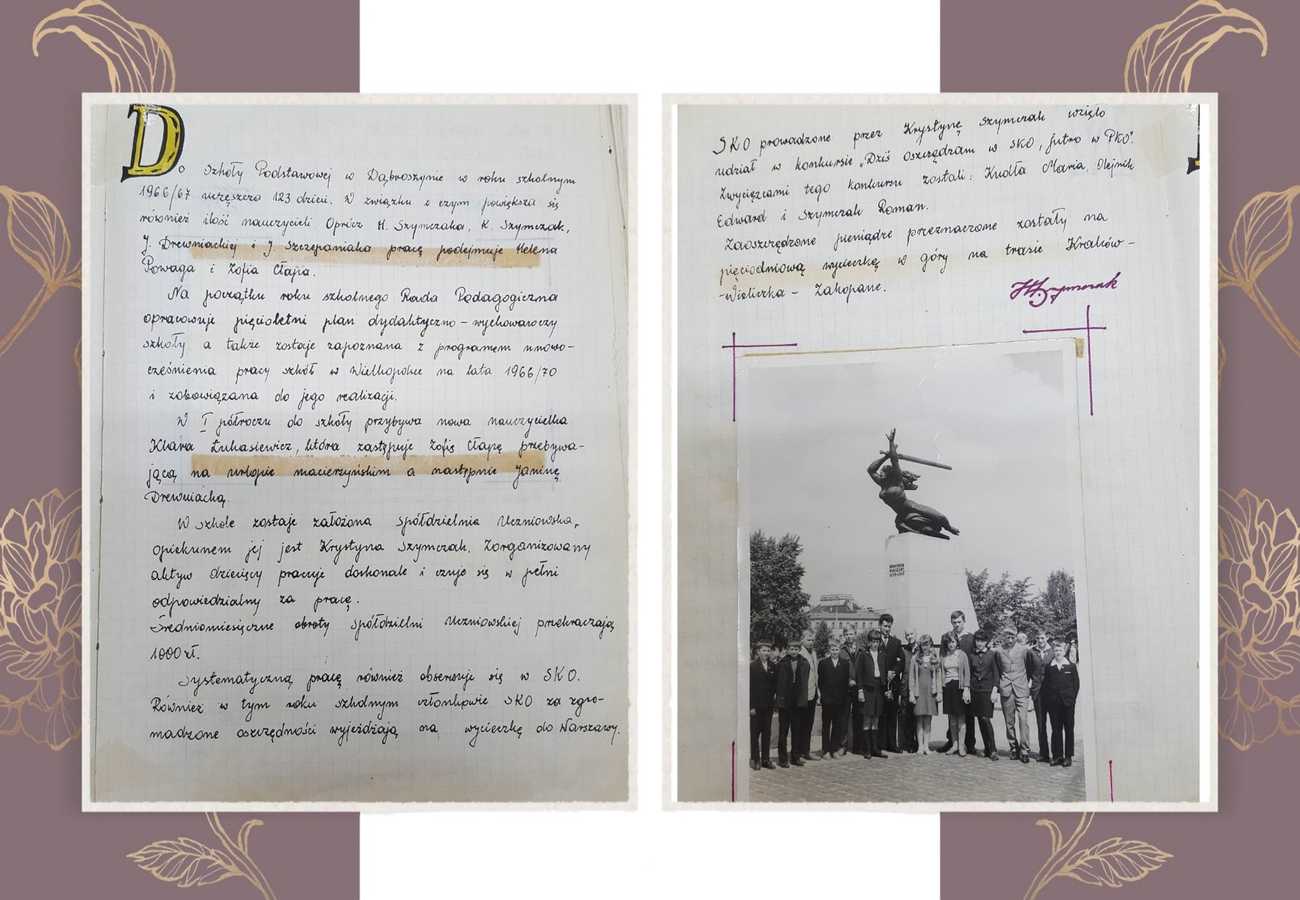 Do Szkoły Podstawowej w Dąbroszynie w roku szkolnym
1966/67 uczęszcza 123 dzieci. W związku z czym powiększa się
również ilość nauczycieli Oprócz H. Szymczaka, K. Szymczak,
J. Drewniackiej i J. Szczepaniaka pracę podejmuje Helena
Powaga i Zofia Cłapa.
Na początku roku szkolnego Rada Pedagogiczna
opracowuje pięcioletni plan dydaktyczno-wychowawczy
szkoły a także zostaje zapoznana z programem unowo-
cześnienia pracy szkół w Wielkopolsce na lata 1966/70
i zobowiązana do jego realizacji.
W I półroczu do szkoły przybywa nowa nauczycielka
Klara Łukasiewicz, która zastępuje Zofię Cłapę przebywa-
jącą na urlopie macierzyńskim a następnie Janinę
Drewniacką.
W szkole zostaje założona Spółdzielnia Uczniowska,
opiekunem jej jest Krystyna Szymczak. Zorganizowany
aktyw dziecięcy pracuje doskonale i czuje się w pełni
odpowiedzialny za pracę.
Średniomiesięczne obroty Spółdzielni Uczniowskiej przekraczają
1000 zł.
Systematyczną pracę również obserwuje się w SKO.
Również w tym roku szkolnym członkowie SKO za zgro-
madzone oszczędności wyjeżdżają na wycieczkę do Warszawy.
SKO prowadzone przez Krystynę Szymczak wzięło
udział w konkursie „Dziś oszczędzam w SKO, jutro w PKO”.
Zwycięzcami tego konkursu zostali: Kudła Maria, Olejnik
Edward i Szymczak Roman.
Zaoszczędzone pieniądze przeznaczone zostały na
pięciodniową wycieczkę w góry na trasie Kraków-
-Wieliczka - Zakopane.
HSzymczak